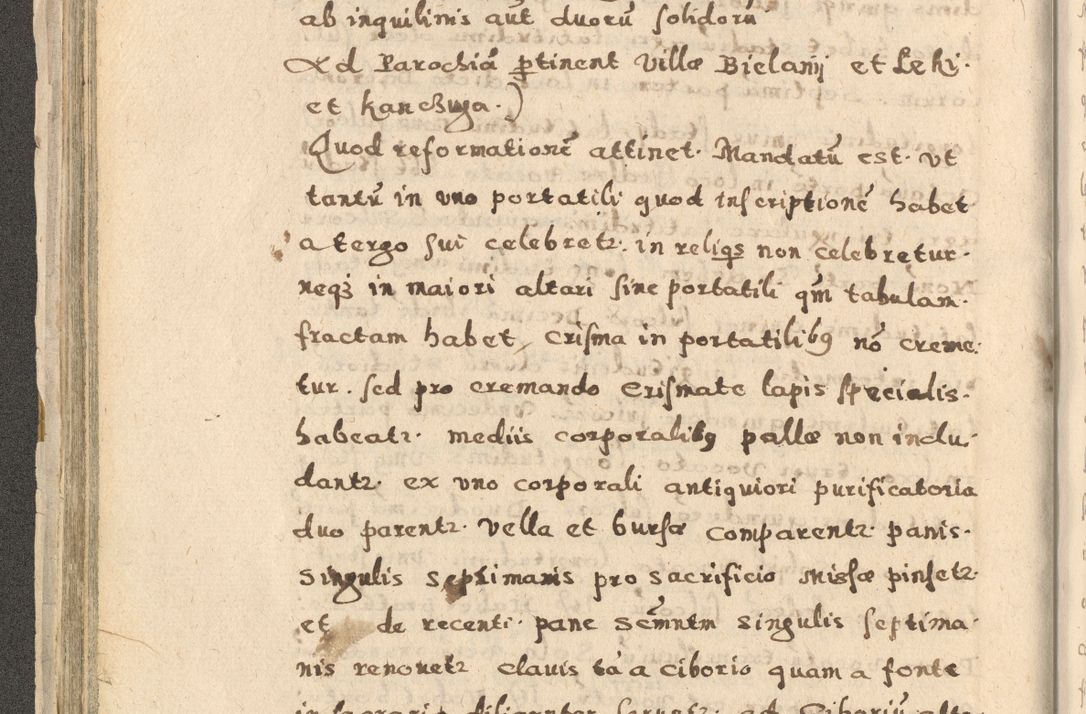 ab inquilinis aūt duorū solidorū
Ad Parochiā ꝑtinent Villæ Bielanÿ et Leki.
et Kanczuga.)
Quod reformationē attinet. Mandatū est. Vt
tantū in vno portatili quod inscriptionē habet
a tergo sui celebretꝛ. in reliqs non celebretur.
neqꝫ in maiori altari sine portatili qm̄ tabulam.
fractam habet, Crisma in portatilibꝰ nō creme.
tur. sed pro cremando Crismate lapis specialis.
habeatꝛ. mediis corporalibꝰ pallæ non inclu.
dantꝛ. ex vno corporali antiquiori purificatoria
duo parentꝛ. Vella et bursæ comparentꝛ. panis.
Singulis Septimanis pro Sacrificio Missæ pinsetꝛ.
et de recenti. pane Sēmntm Singulis septima.
nis renovetꝛ clavis tā a ciborio quam a fonte
in sacrario diligenter servetꝛ. ad Ciborium